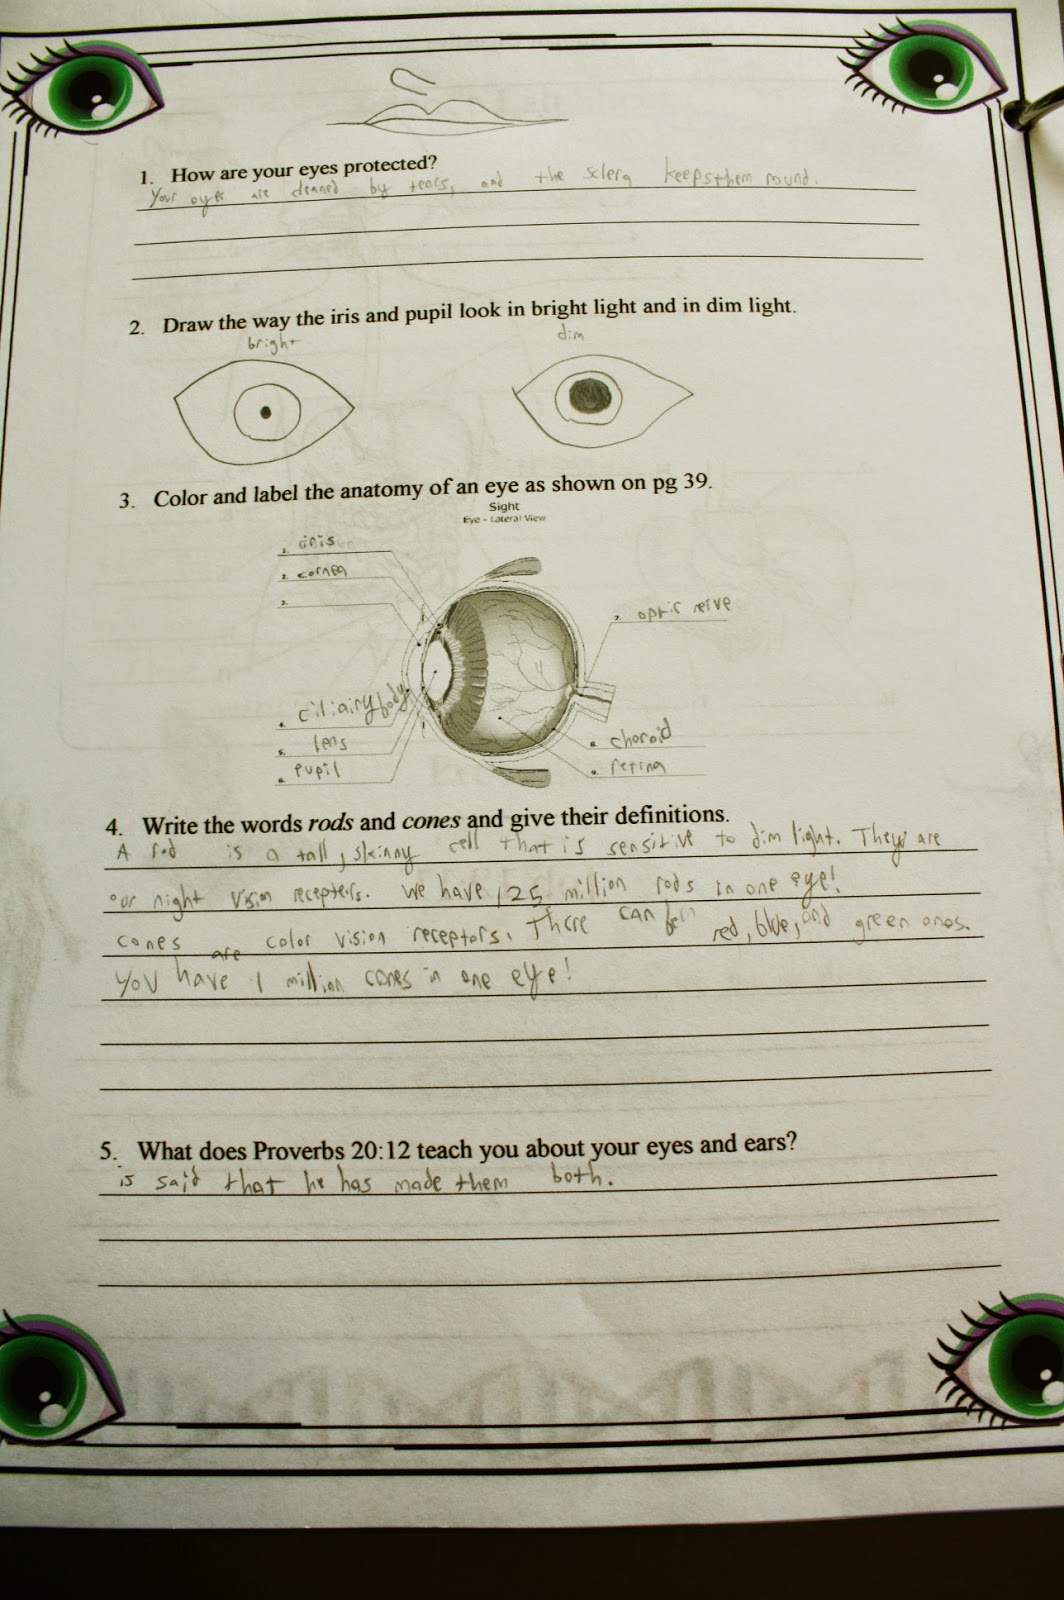 1. How are your eyes protected?
Your eyes are cleaned by tears, and the sclera keeps them round.
2. Draw the way the iris and pupil look in bright light and in dim light.
bright
dim
3. Color and label the anatomy of an eye as shown on pg 39.
Sight
Eye - Lateral View
1. iris
2. cornea
3.
7. optic nerve
4. ciliairy body
5. lens
6. pupil
8. choroid
9. retina
4. Write the words rods and cones and give their definitions.
A rod is a tall, skinny cell that is sensitive to dim light. They are
our night vision recepters. We have 125 million rods in one eye!
cones are color vision receptors. There can be red, blue, and green ones.
You have 1 million cones in one eye!
5. What does Proverbs 20:12 teach you about your eyes and ears?
is said that he has made them both.